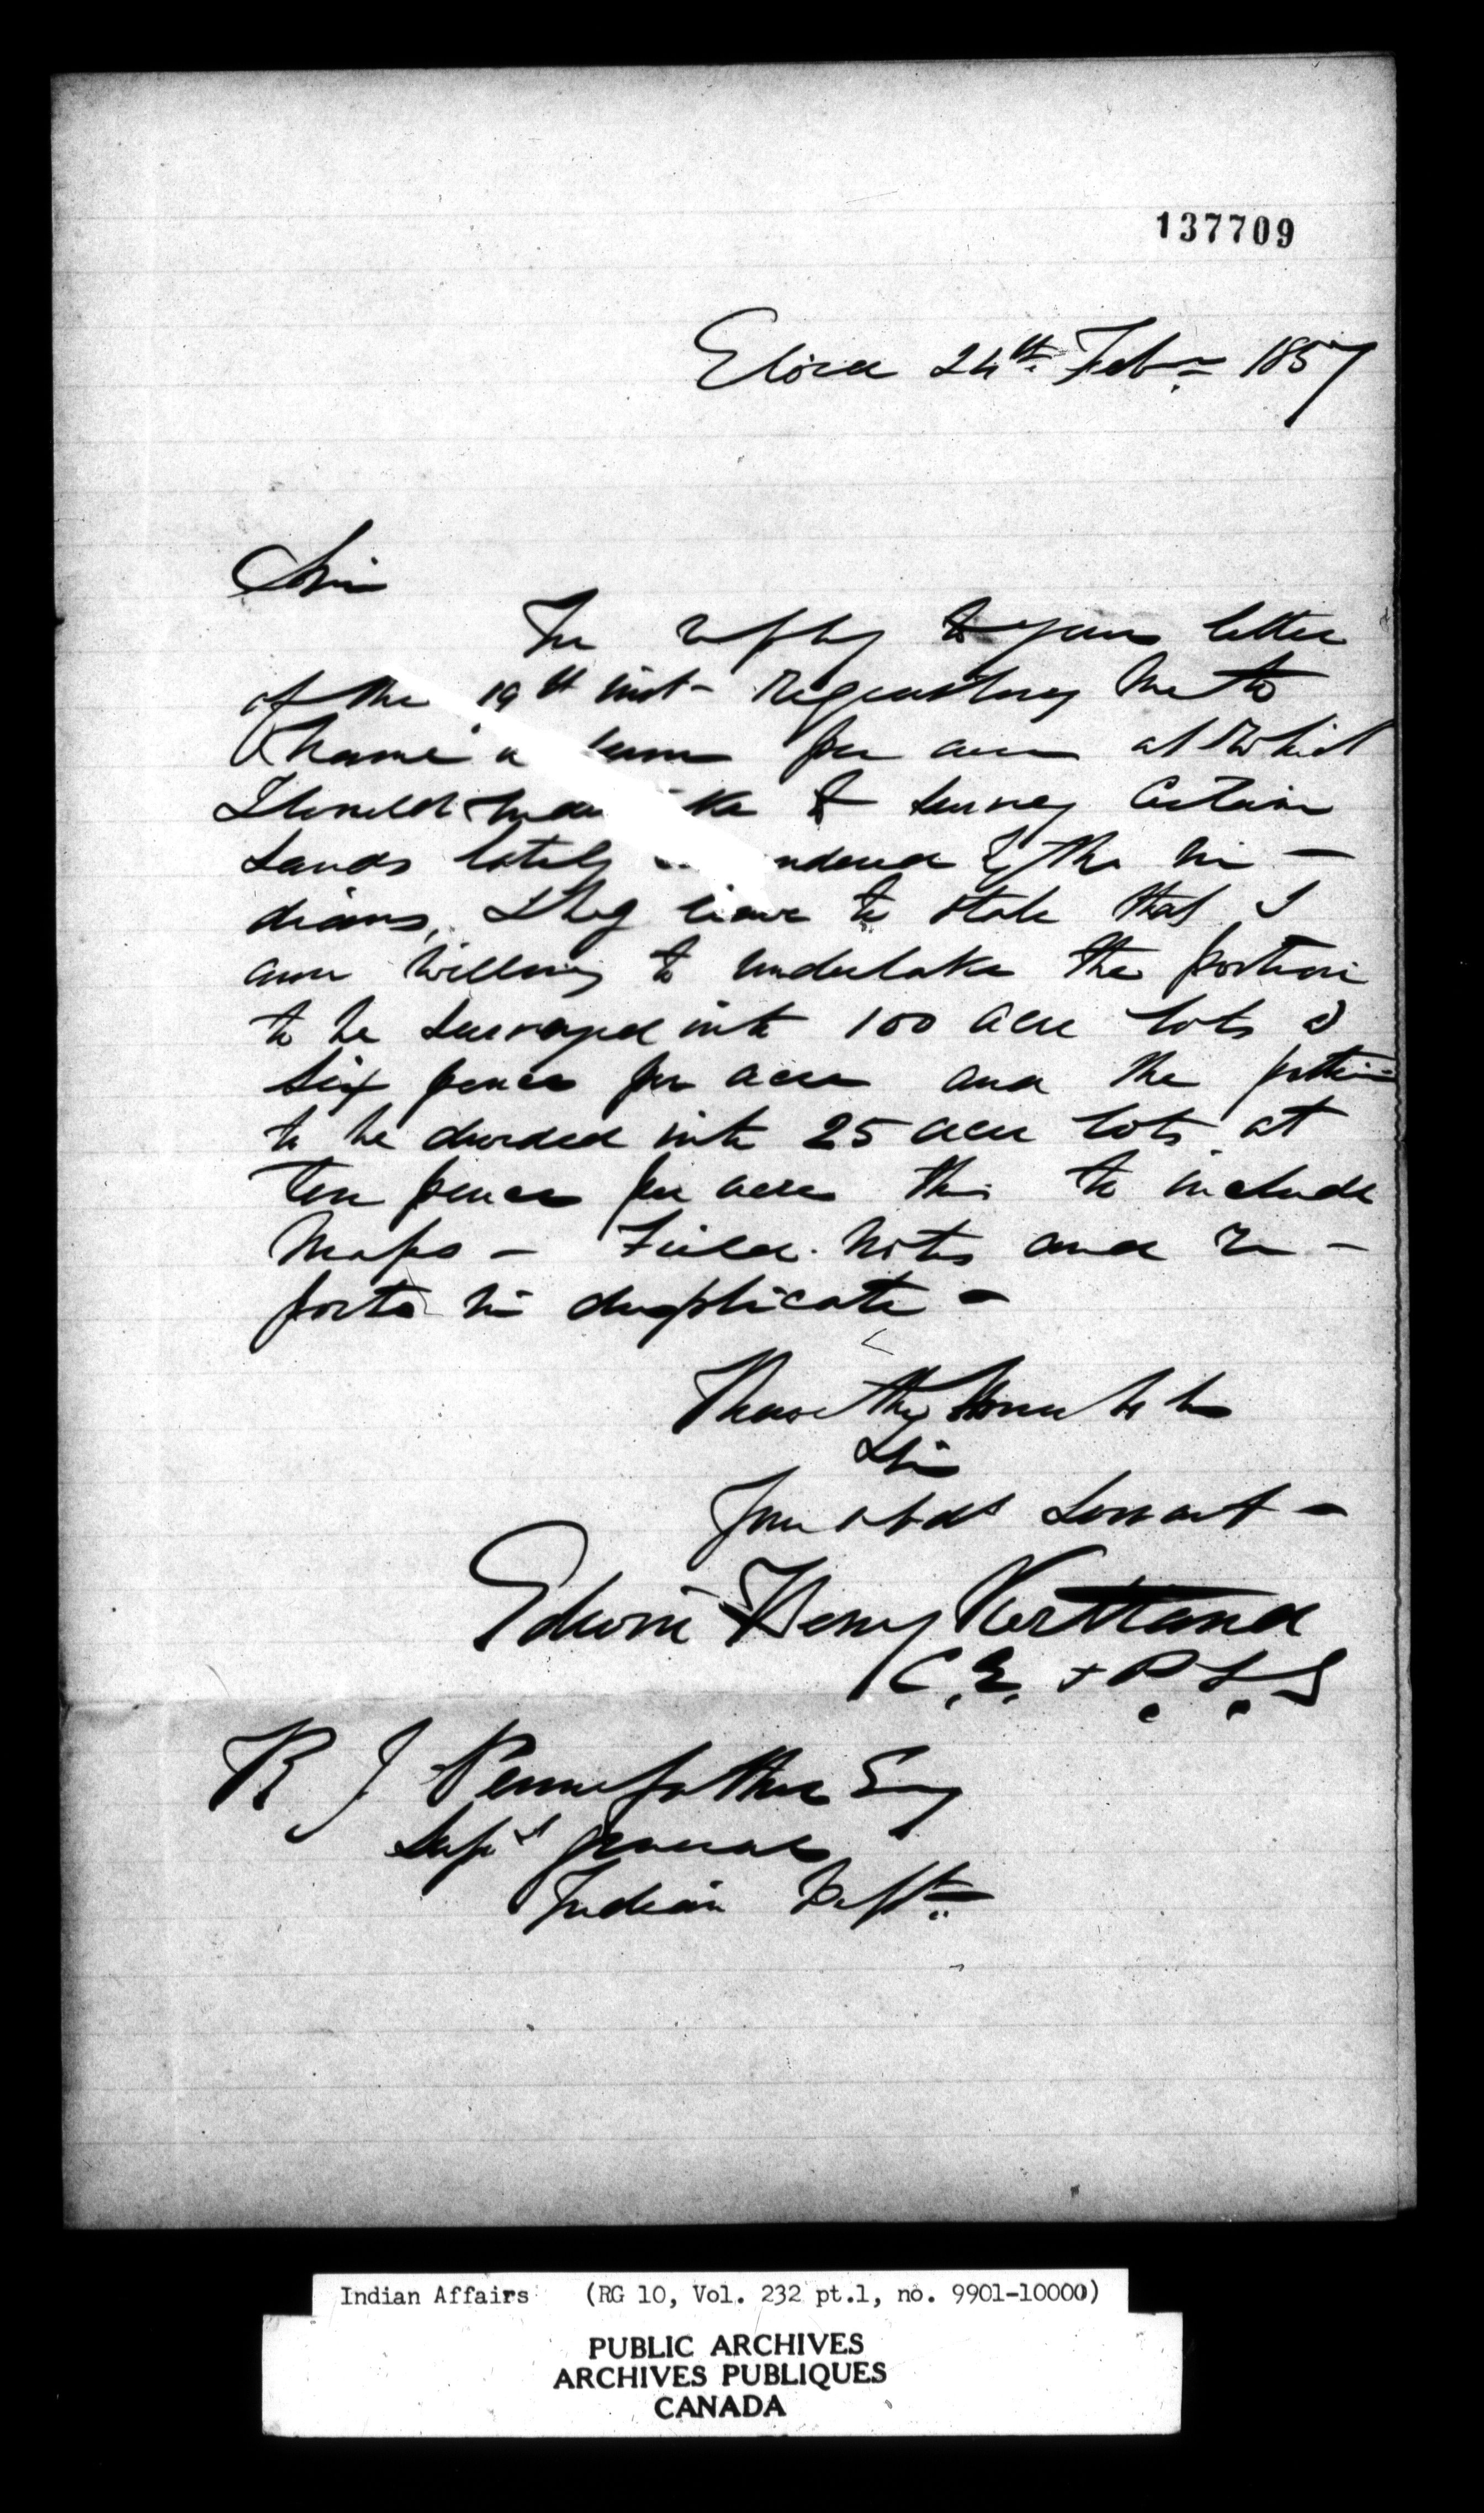 137709
Elora 24th Feby 1857
Sir
In reply to your letter
of the 19th inst- requesting me to
name a sum per acre at which
I would undertake to survey certain
Lands lately surrendered by the In-
dians, I beg leave to state that I
am willing to undertake the portion
to be surveyed into 100 acre lots @
six pence per acre and the portion
to be divided into 25 acre lots at
ten pence per acre this to include
Maps - Field Notes and re-
ports in duplicate -
I have the honour to be
Sir
Your obdt Servant -
Edwin Henry Kertland
C.E. + P.L.S
R J Pennefather Esq
Supt General
Indian Dept
Indian Affairs (RG 10, Vol. 232 pt.1, no. 9901-10000)
PUBLIC ARCHIVES
ARCHIVES PUBLIQUES
CANADA